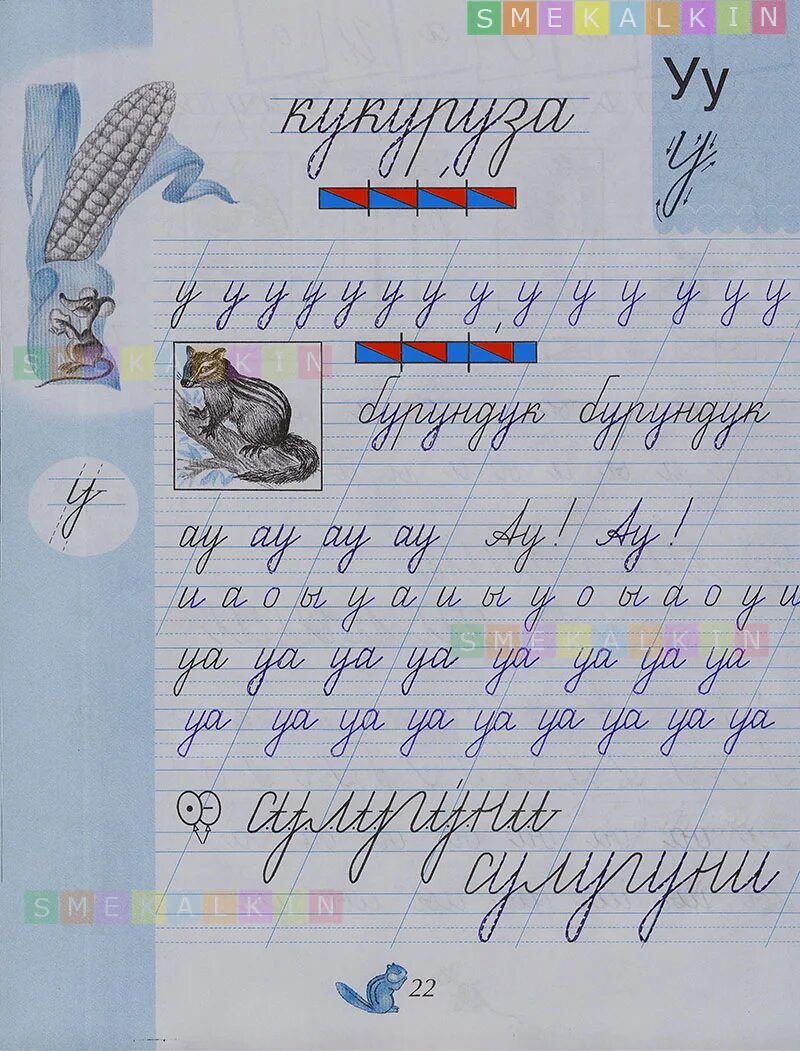 SMEKALKIN
Уу
у
кукуруза
у у у у у у у у у у у у у у
SMEKALKIN
бурундук бурундук
у
ау ау ау ау Ау! Ау!
и а о ы у а и ы у о ы а о у и
SMEKALKIN
уа уа уа уа уа уа уа уа
уа уа уа уа уа уа уа уа уа
сулугуни
сулугуни
SMEKALKIN
22